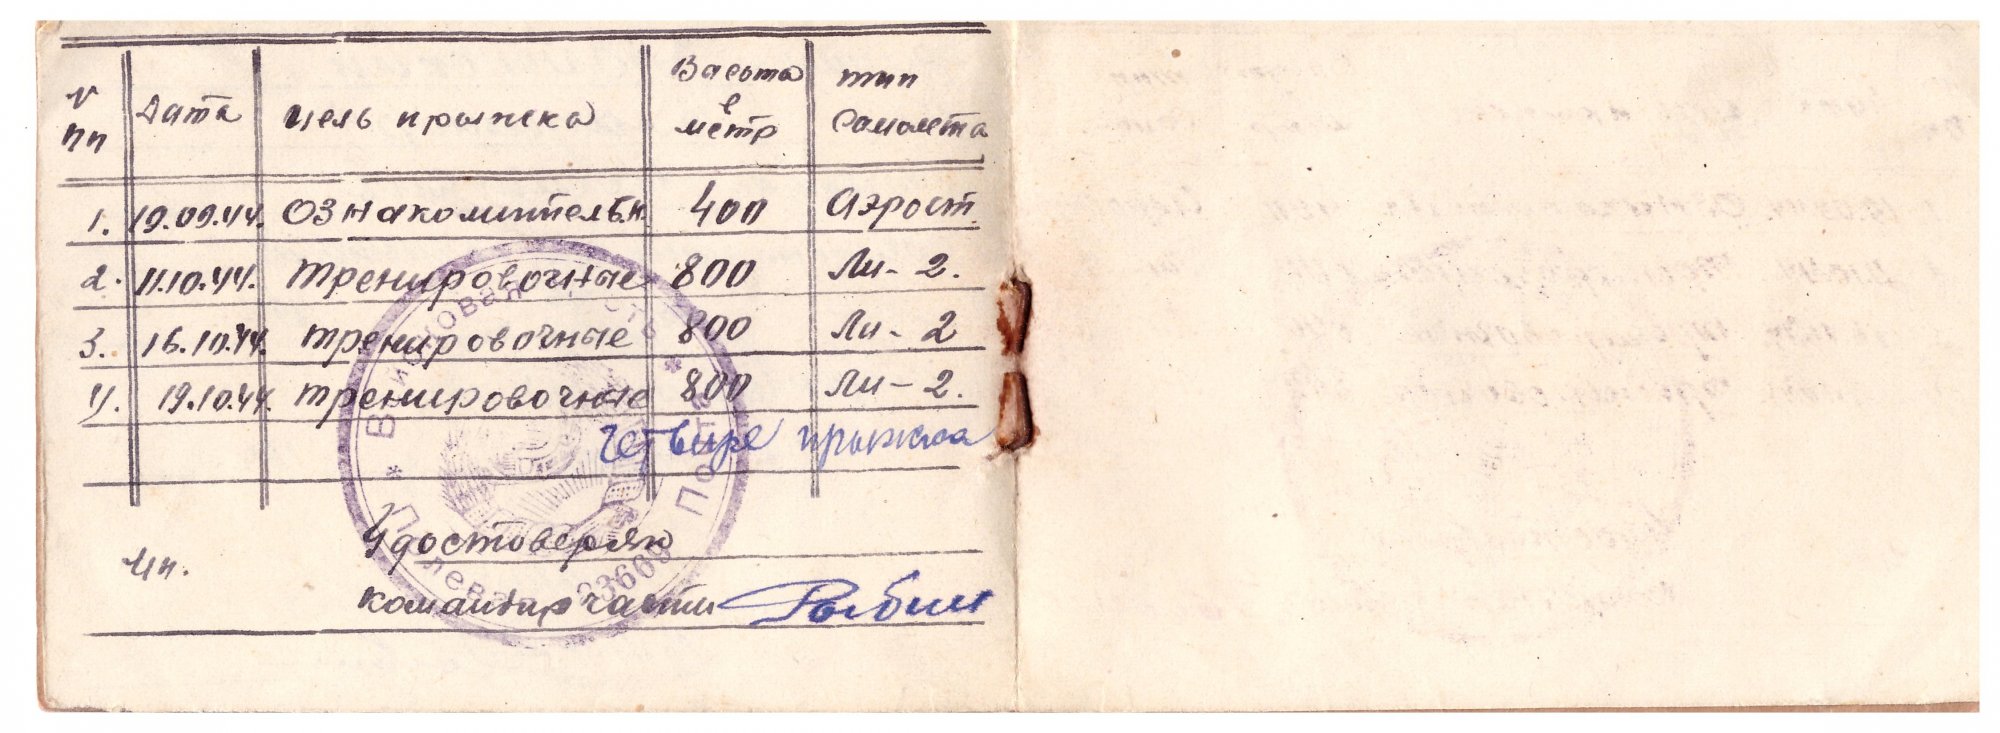 № пп | Дата | Цель прыжка | Высота в метр | тип самолета
1. | 19.09.44. | Ознакомительн. | 400 | Аэрост
2. | 11.10.44. | тренировочные | 800 | Ли-2.
3. | 16.10.44. | тренировочные | 800 | Ли-2
4. | 19.10.44. | тренировочные | 800 | Ли-2.
четыре прыжка
Удостоверяю
командир части Рыбин
Войсковая часть * Полевая Почта